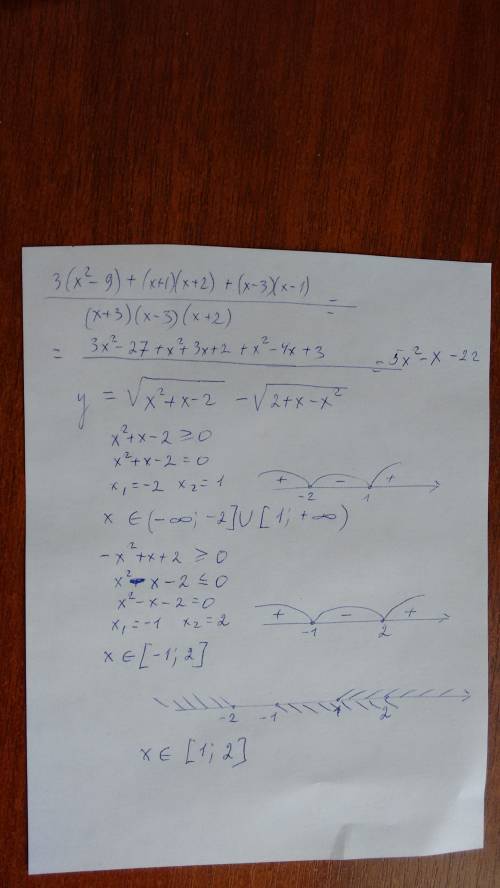 3(x²-9)+(x+1)(x+2)+(x-3)(x-1)
(x+3)(x-3)(x+2) =
= 3x²-27+x²+3x+2+x²-4x+3 = 5x²-x-22
y = √x²+x-2 - √2+x-x²
x²+x-2 ≥ 0
x²+x-2=0
x₁=-2 x₂=1
+ - +
-2 1
x ∈ (-∞; -2] ∪ [1; +∞)
-x²+x+2 ≥ 0
x²-x-2 ≤ 0
x²-x-2=0
x₁=-1 x₂=2
+ - +
-1 2
x ∈ [-1; 2]
-2 -1 1 2
x ∈ [1; 2]